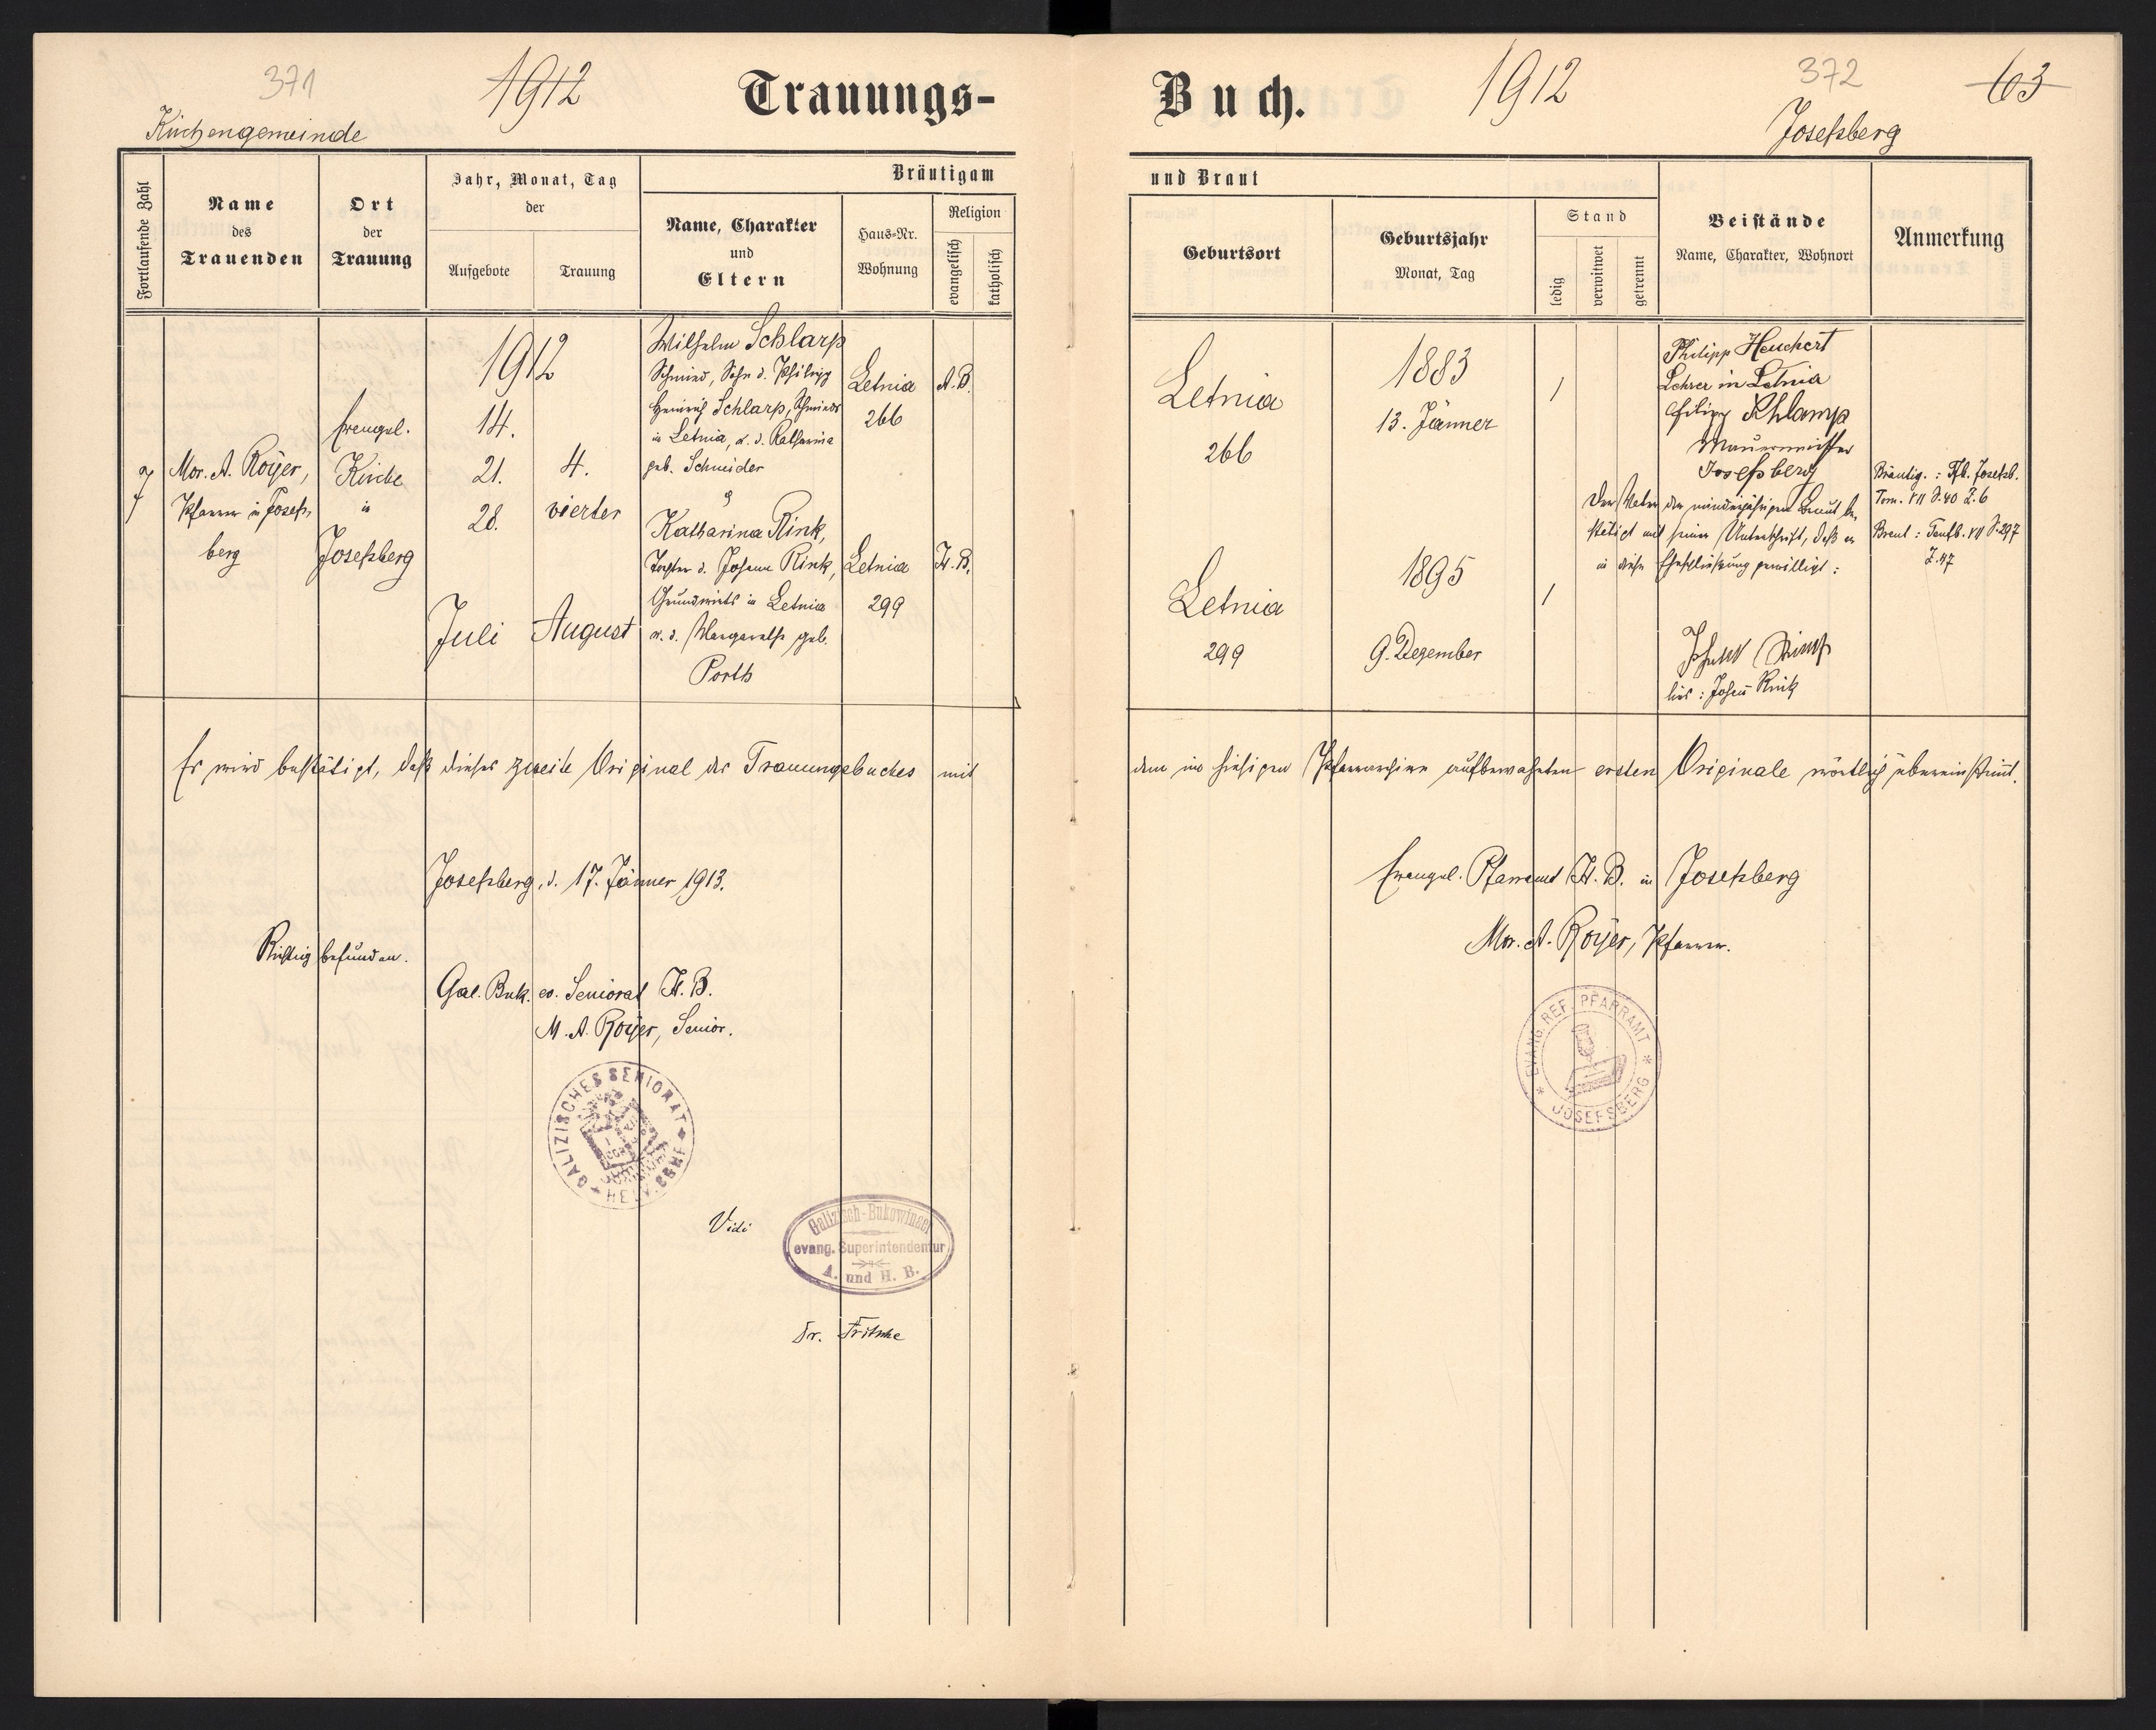 371
1912
Trauungs-
Kirchengemeinde
Fortlaufende Zahl
Name
des
Trauenden
Ort
der
Trauung
Jahr, Monat, Tag
der
Aufgebote
Trauung
Bräutigam
Name, Charakter
und
Eltern
Haus-Nr.
Wohnung
Religion
evangelisch
katholisch
7
Mor. A. Royer,
Pfarrer in Josefs-
berg
Evangel.
Kirche
in
Josefsberg
1912
14.
21.
28.
Juli
4.
vierter
August
Wilhelm Schlarp
Schmied, Sohn d. Philipp
Heinrich Schlarp, Schmieds
in Letnia, u. d. Katharina
geb. Schneider
Letnia
266
A.B.
Katharina Rink,
Tochter d. Johann Rink,
Grundwirts in Letnia
u. d. Margareth geb.
Porth
Letnia
299
H.B.
Es wird bestätigt, daß dieses zweite Original des Trauungsbuches mit
Josefsberg, d. 17. Jänner 1913.
Richtig befunden.
Gal. Buk. ev. Seniorat H.B.
M. A. Royer, Senior.
GALIZISCHES SENIORAT
Vidi
Galizisch-Bukowinaer
evang. Superintendentur
A. und H. B.
Dr. Fritsche
Buch.
1912
372
63
Josefsberg
und Braut
Geburtsort
Geburtsjahr
Monat, Tag
Stand
ledig
verwitwet
getrennt
Beistände
Name, Charakter, Wohnort
Anmerkung
Letnia
266
1883
13. Jänner
1
Philipp Heuchert
Lehrer in Letnia
Filipp Schlamp
Mauermeister
Josefsberg
Der Vater der minderjährigen Braut be-
stätigt mit seiner Unterschrift, daß er
in diese Eheschließung gewilligt:
Johann Rink
lies: Johann Rink
Bräutig.: Tfb. Josefsb.
Tom. VII S. 40 Z. 6
Braut: Taufb. VII S. 297
Z. 47
Letnia
299
1895
9. Dezember
1
dem im hiesigen Pfarrarchive aufbewahrten ersten Originale wörtlich übereinstimmt.
Evangel. Pfarramt H. B. in Josefsberg
Mor. A. Royer, Pfarrer.
* EVANG. REF. PFARRAMT *
JOSEFSBERG